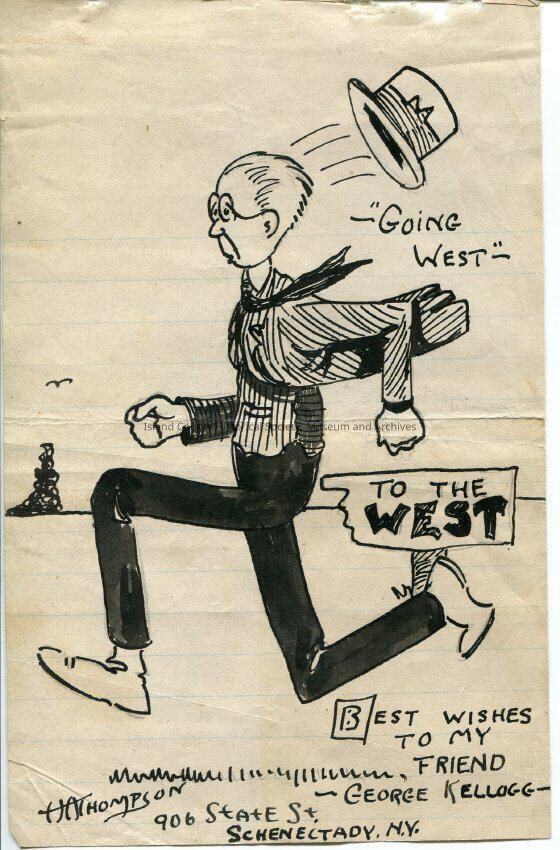 -"GOING
WEST"-
Island County Historical Society Museum and Archives
TO THE
WEST
BEST WISHES
TO MY
FRIEND
- GEORGE KELLOGG-
THOMPSON
906 STATE St.
SCHENECTADY, N.Y.